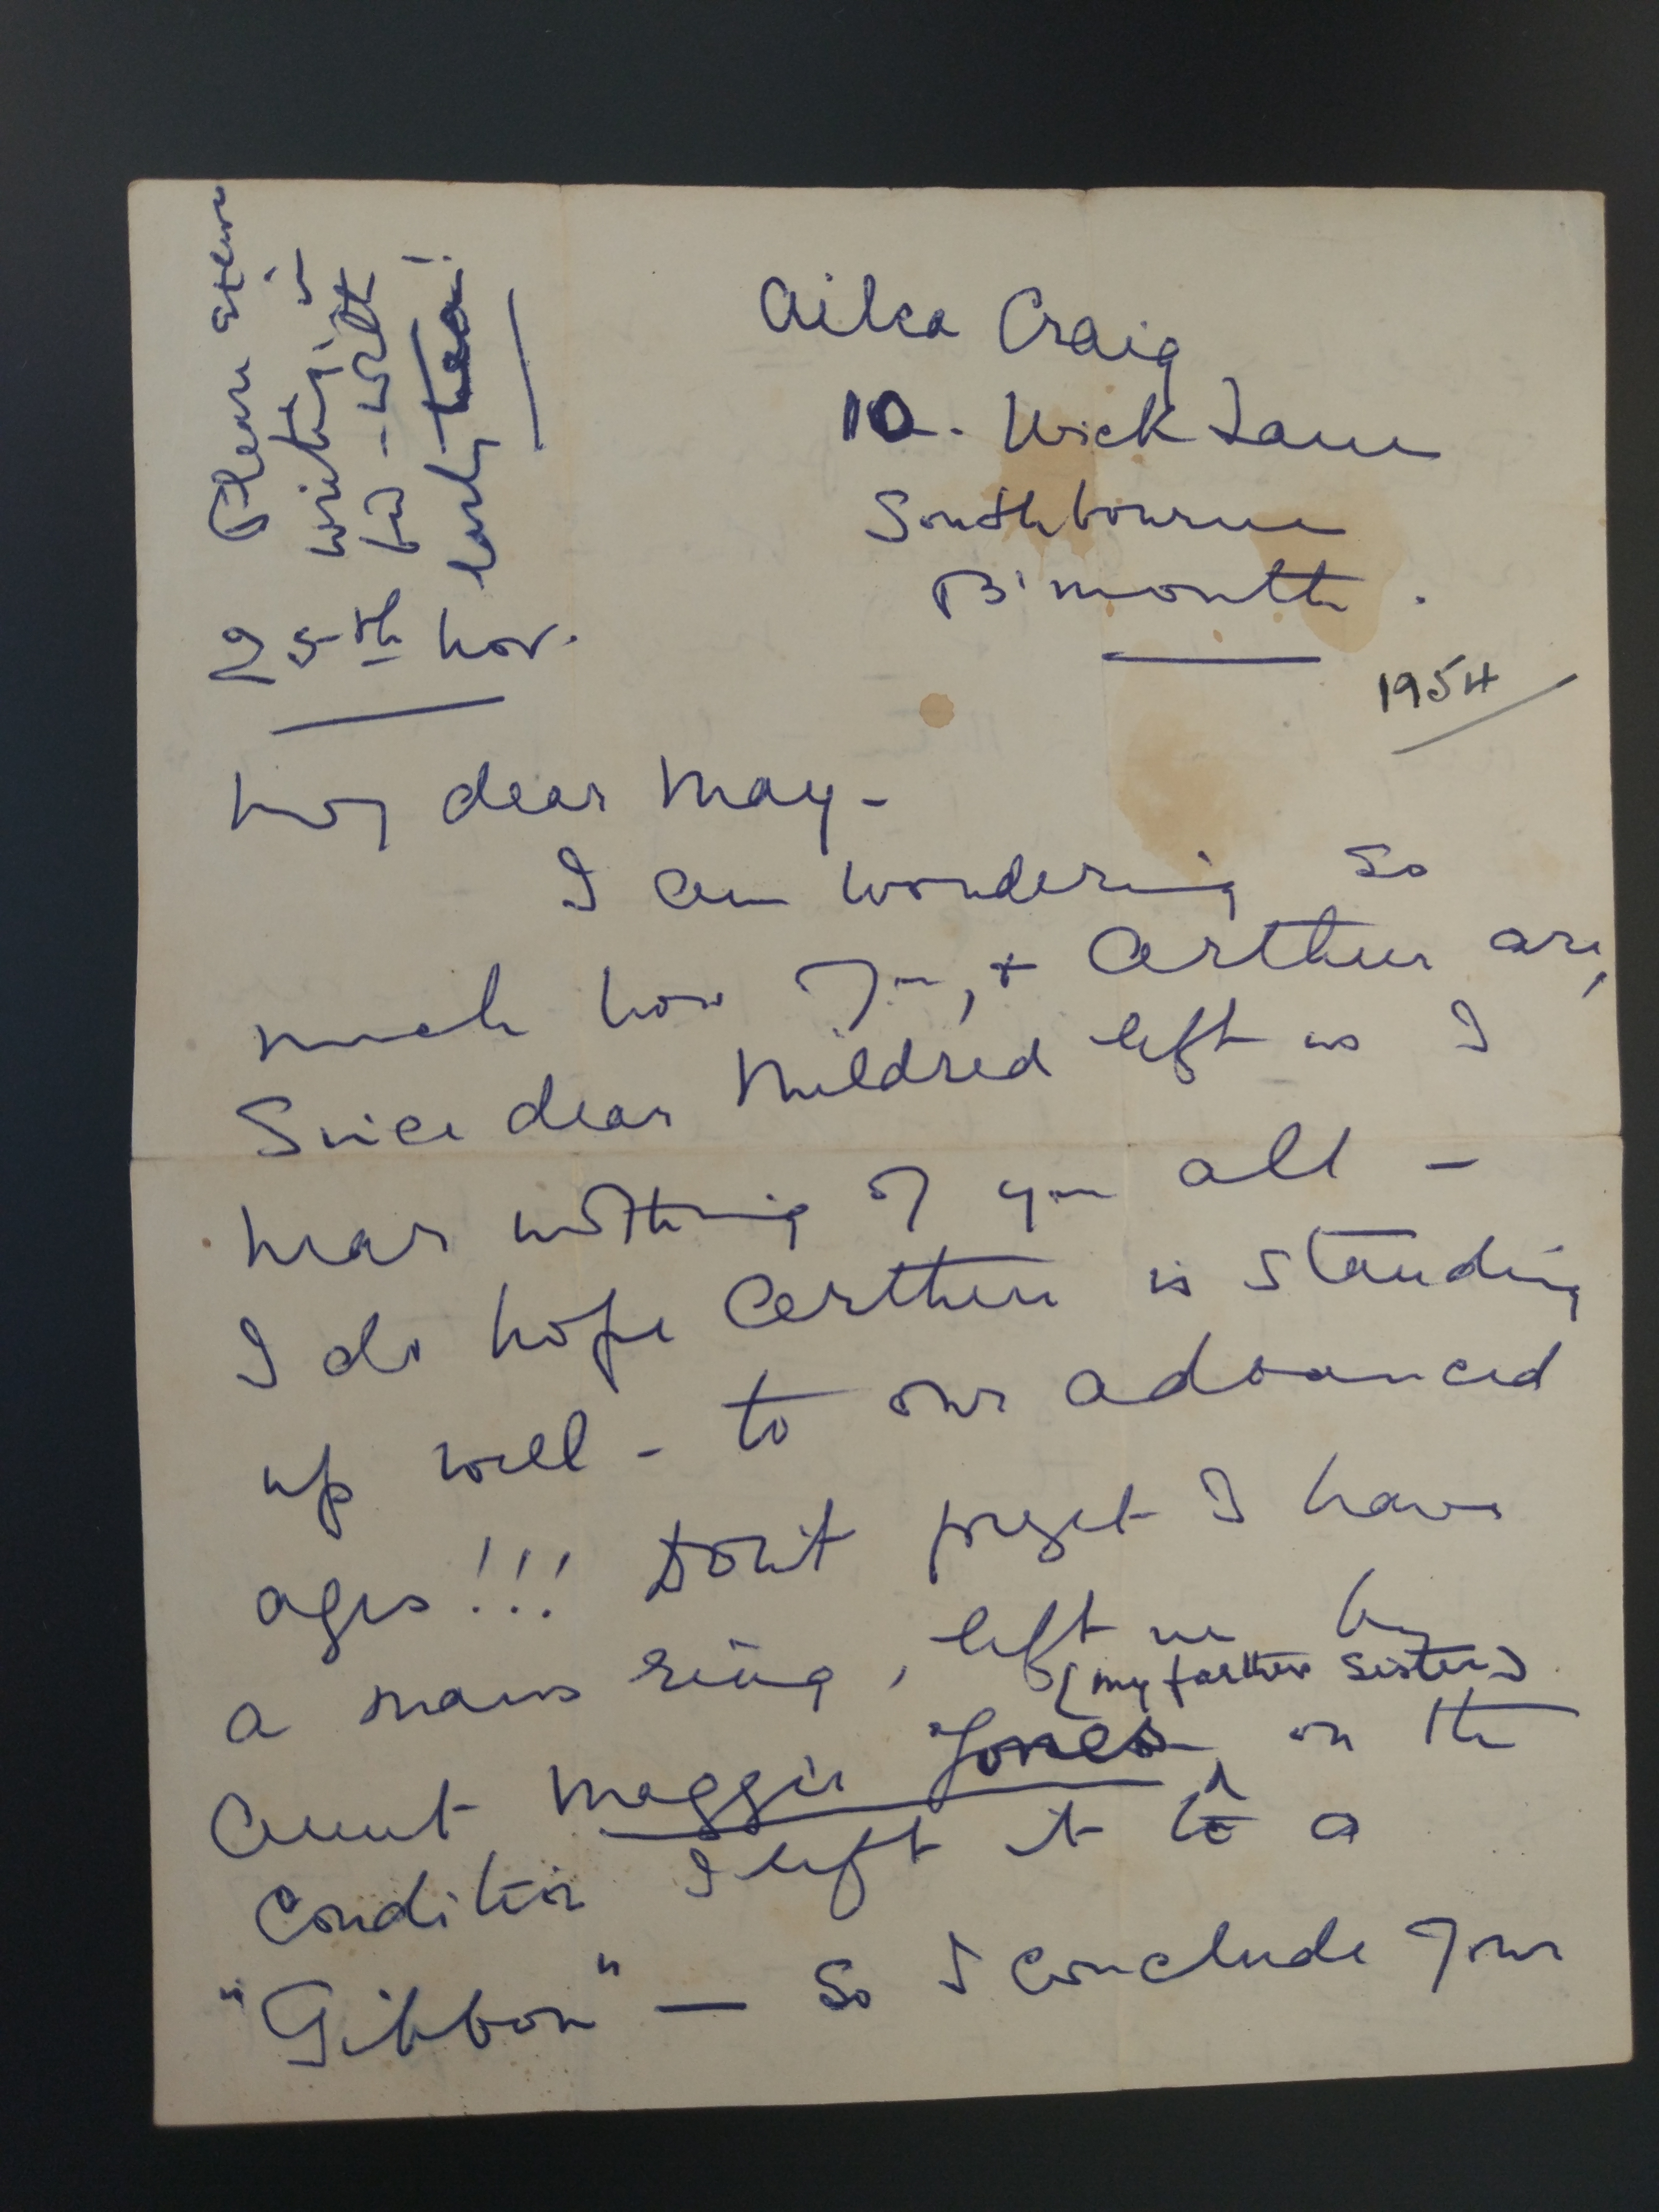 Ailsa Craig
10. Wick Lane
Southbourne
B'mouth.
1954
Please excuse
writing in
bed - with
early tea!
25th Nov.
My dear May -
I am wondering so
much how you, + Arthur are,
Since dear Mildred left us I
hear nothing of you all -
I do hope Arthur is standing
up well - to our advanced
ages!!! Don't forget I have
a mans ring, left me by
(my farther sister)
Aunt Maggie Jones, on the
condition I left it to a
"Gibbon" — So I conclude your